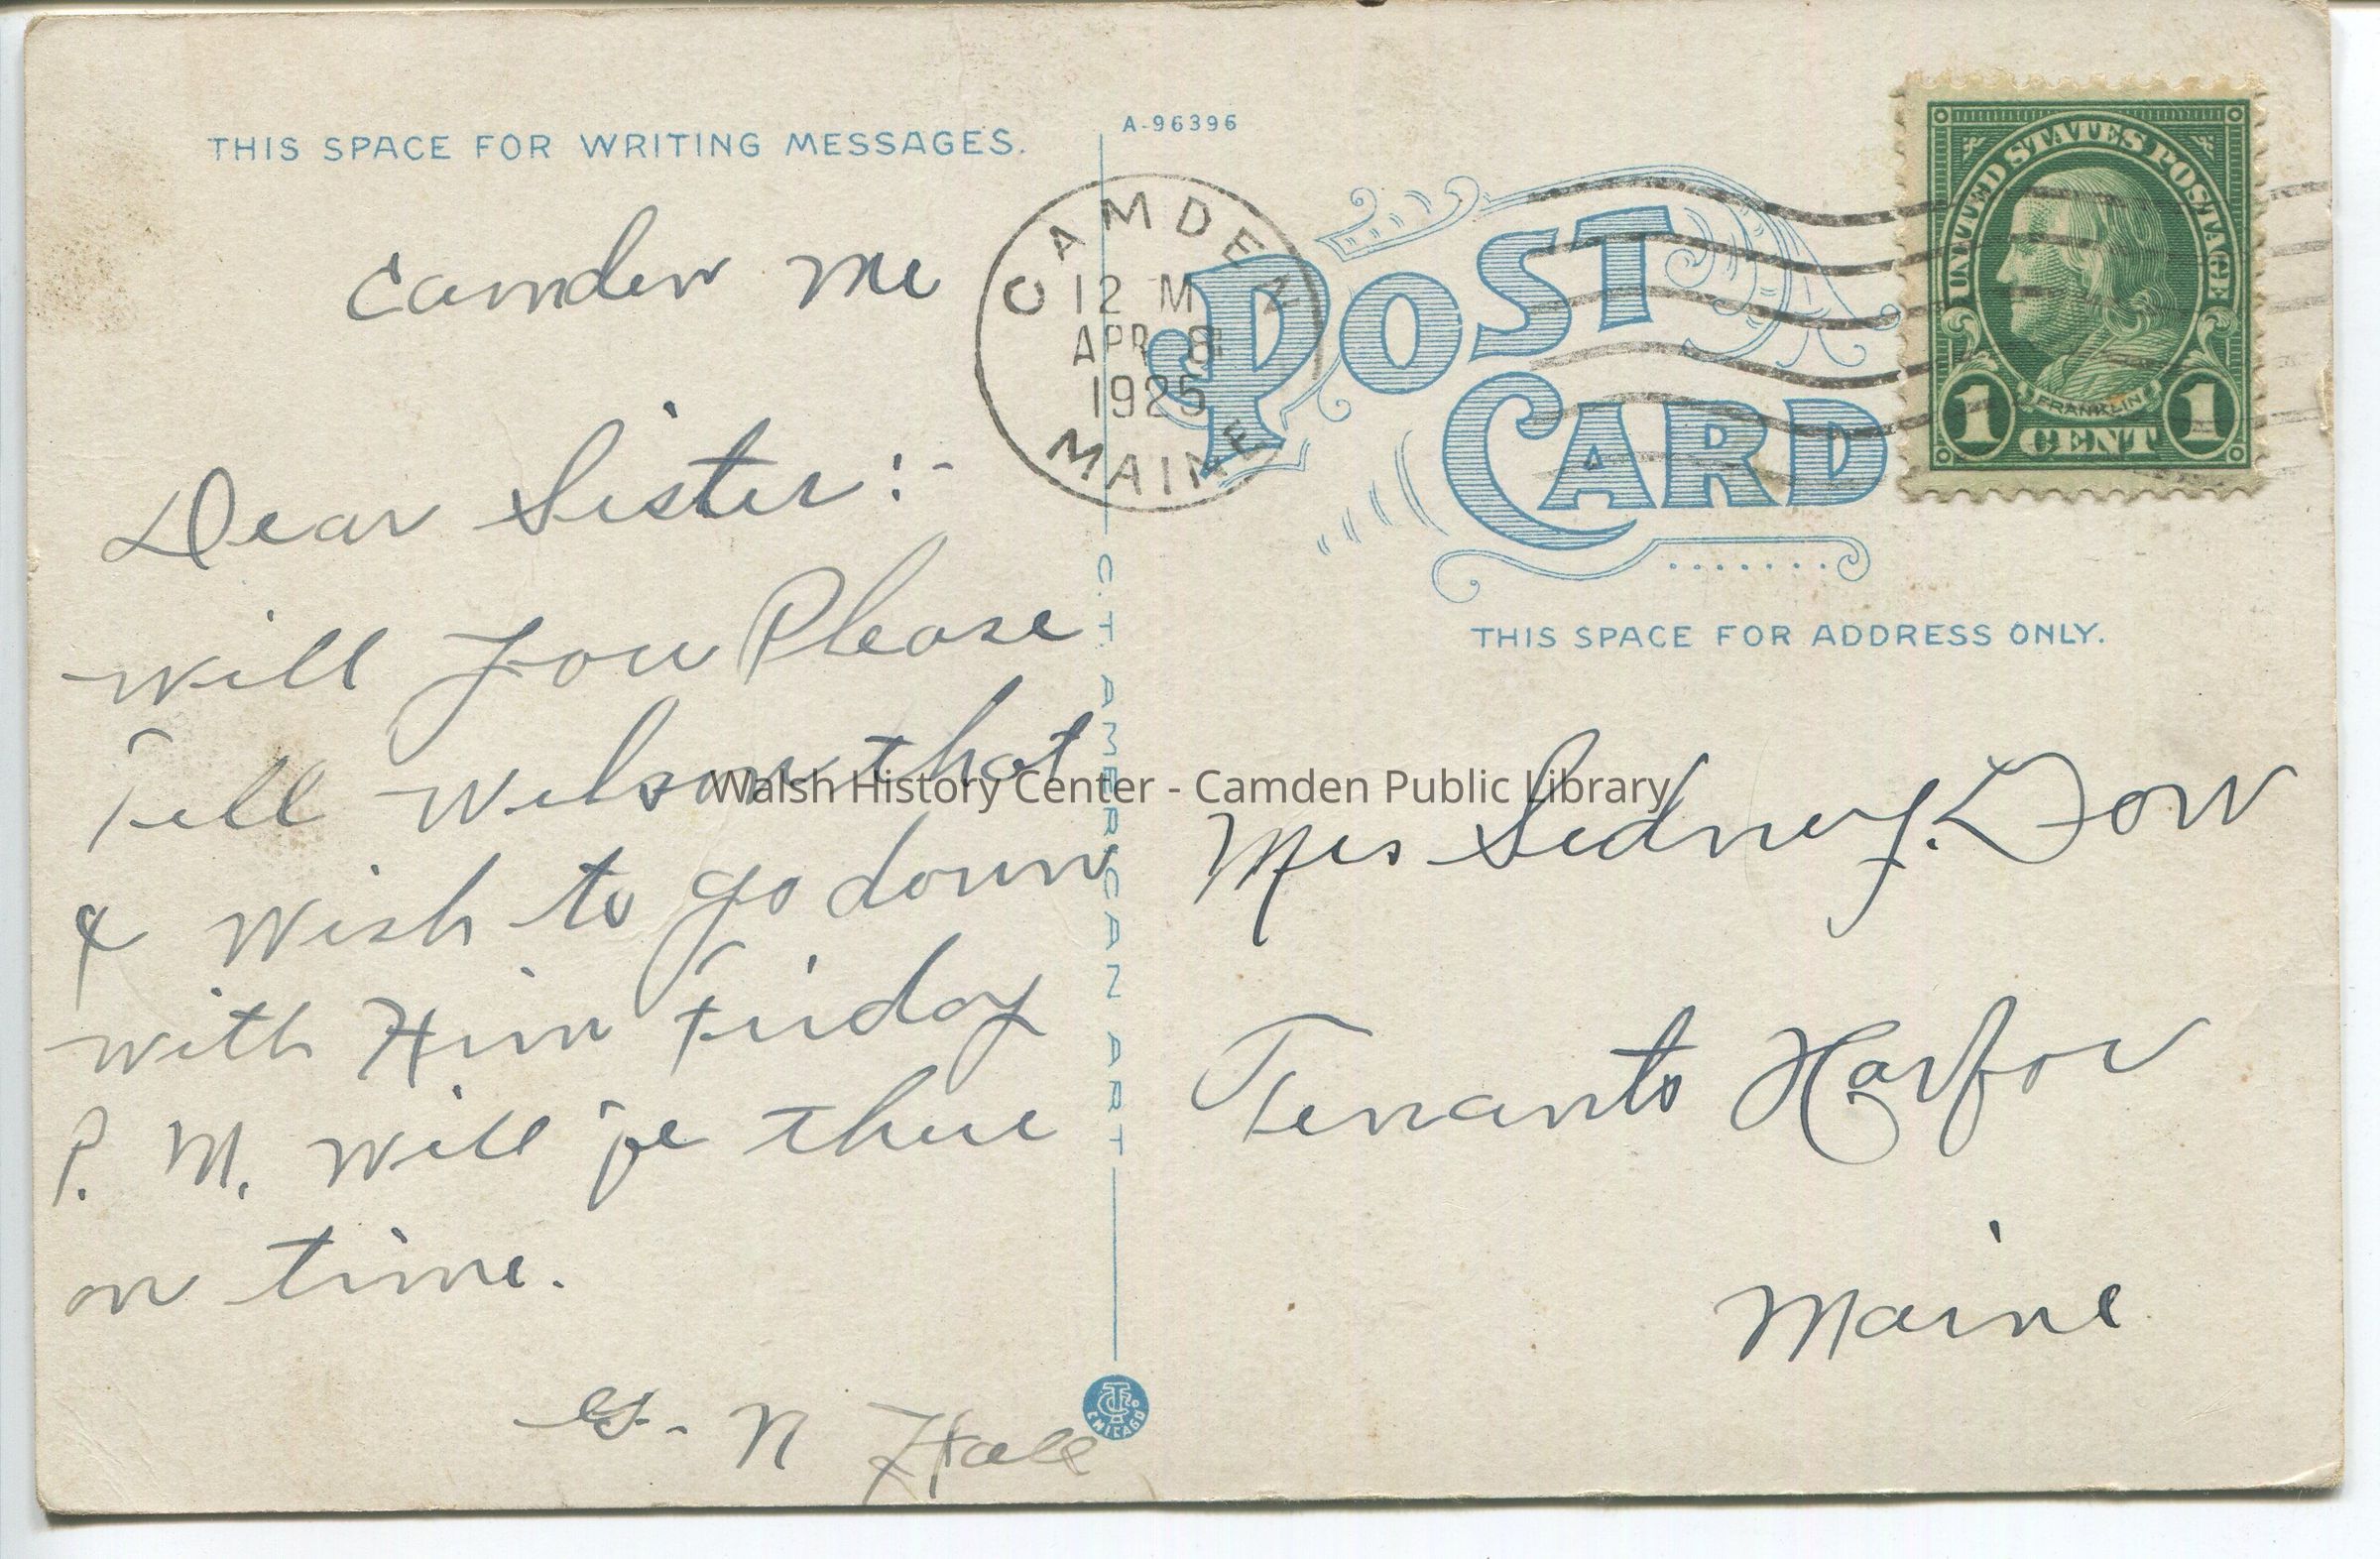 THIS SPACE FOR WRITING MESSAGES.
Camden Me
Dear Sister:-
will you Please
Tell Wilson that
I wish to go down
with Him Friday
P. M. will be there
on time.
G. N Hall
A-96396
C.T. AMERICAN ART
CHICAGO
CAMDEN
12 M
APR 8
1925
MAINE
POST
CARD
UNITED STATES POSTAGE
FRANKLIN
1 CENT 1
THIS SPACE FOR ADDRESS ONLY.
Mrs Sidney. Dow
Tenants Harbor
Maine
Walsh History Center - Camden Public Library